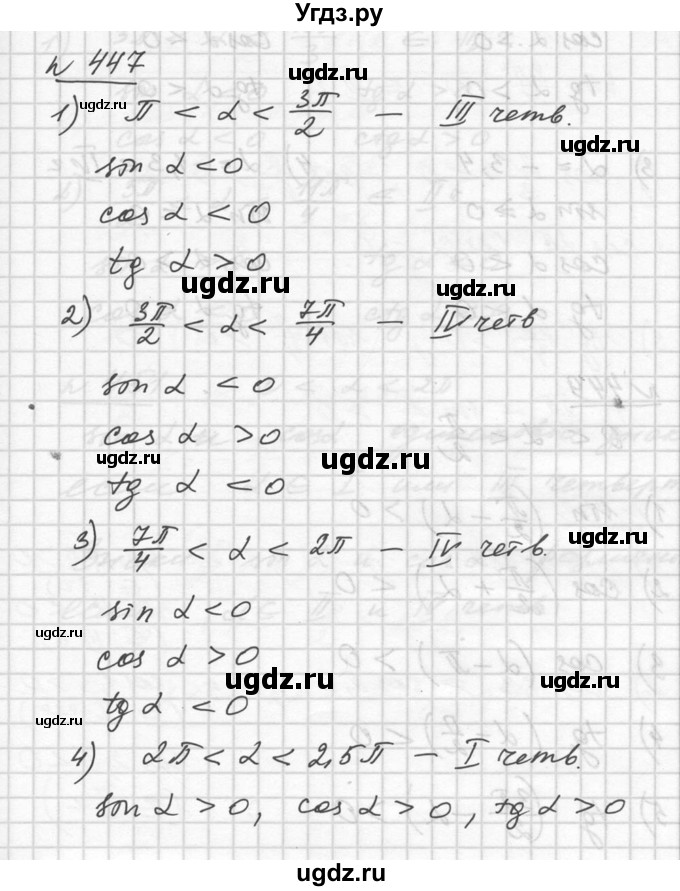 Угдз.ру
N 447
ugdz.ru
ugdz.ru
1) π < α < 3π/2 — III четв.
ugdz.ru
sin α < 0
cos α < 0
tg α > 0
ugdz.ru
ugdz.ru
2) 3π/2 < α < 7π/4 — IV четв
sin α < 0
cos α > 0
ugdz.ru
ugdz.ru
tg α < 0
3) 7π/4 < α < 2π — IV четв.
ugdz.ru
sin α < 0
ugdz.ru
cos α > 0
ugdz.ru
ugdz.ru
tg α < 0
ugdz.ru
4) 2π < α < 2,5π — I четв.
sin α > 0, cos α > 0, tg α > 0
ugdz.ru